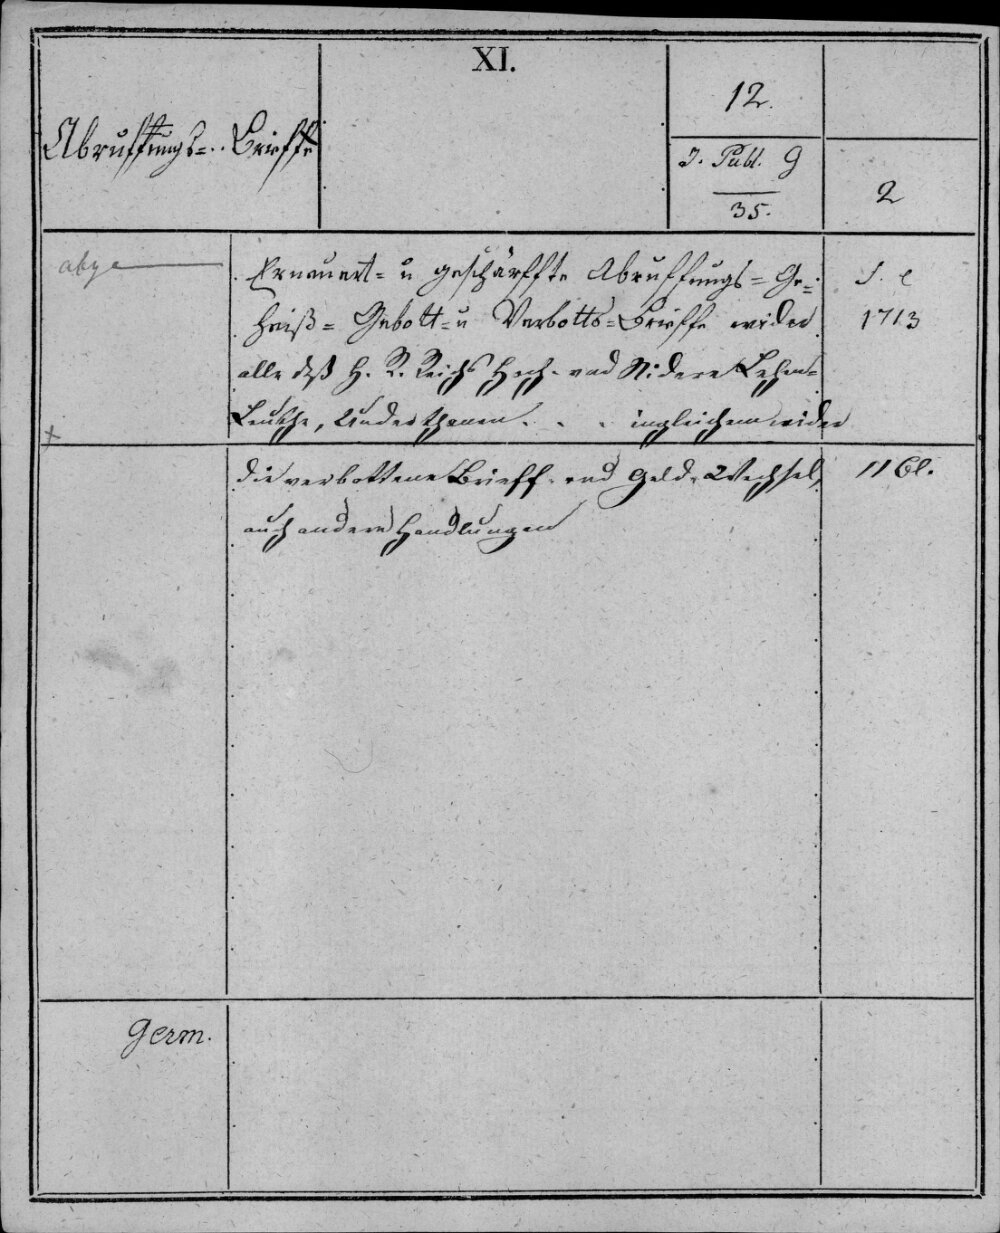 XI.
12.
Abruffungs=.. Brieffe
J. Publ. g
35.
2
Erneuert= u geschärffte Abruffungs= Ge=
S. l
heiß= Gebott= u Verbotts=Brieffe wider
1713
alle deß H. R. Reichs Hoch- und Nidere Lehen=
Leuthe, Underthanen . . . ingleichem wider
die verbottene Brieff- und Geld-Wechsel,
11 Bl.
auch andere Handlungen
germ.